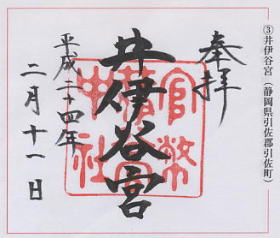 ③井伊谷宮（静岡県引佐郡引佐町）
奉拝
井伊谷宮
平成二十四年
二月十一日
官幣
中社